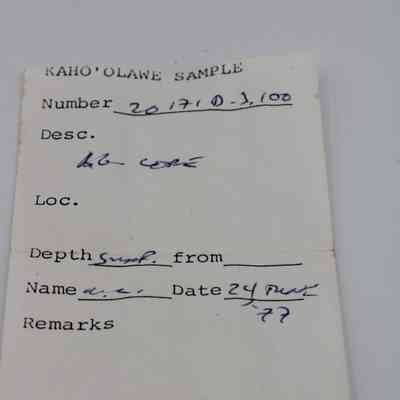 KAHO'OLAWE SAMPLE
Number
Desc.
CORE
Loc.
Depth Surf. from
Name Date 24
'77
Remarks